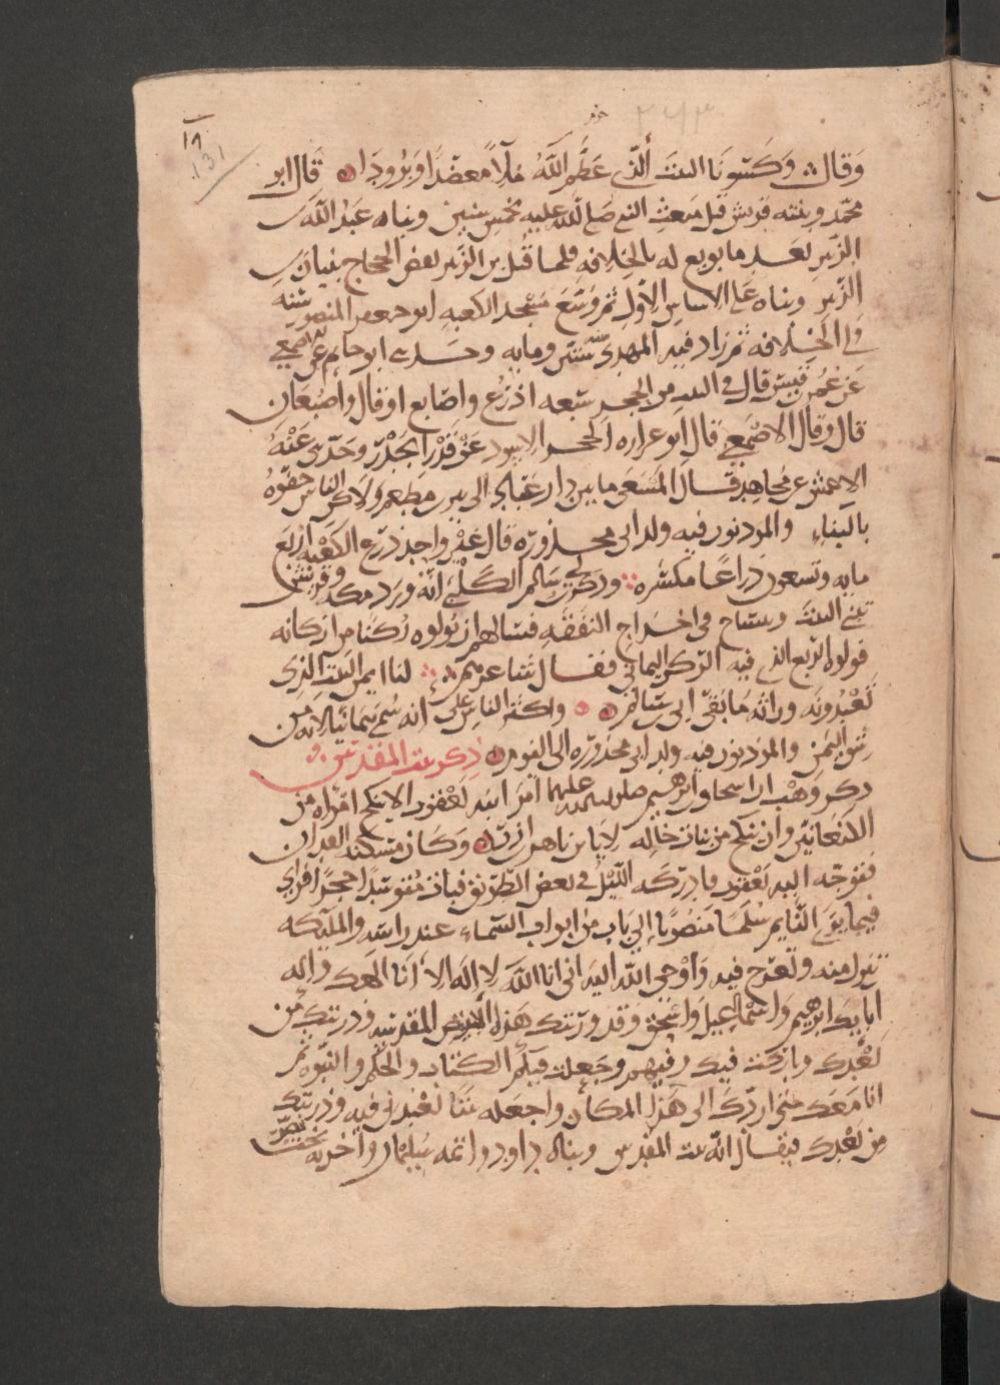 ١٩
131
وقال وكسونا البيت الذي عظم الله ملاء معضدا وبرودا قال ابو
محمد وبنته قريش قبل مبعث النبي صلى الله عليه بخمس سنين وبناه عبد الله بن
الزبير بعد ما بويع له بالخلافة فلما قتل بن الزبير نقض الحجاج بنيان بن
الزبير وبناه على الاساس الاول ثم وسع مسجد الكعبه ابو جعفر المنصور سنه
في الخلافه ثم زاد فيه المهدي سنة ستين ومايه وحدثني ابو حاتم عن الاصمعي
عن عمر بن قيس قال في البيت من الحجر سبعه اذرع واصابع او قال واصبعان
قال وقال الاصمعي قال ابو عراره الحجر الاسود عن قدر الجدر وحدثني عنه
الاعمش عن مجاهد قال المسعى ما بين دار عباد الى بير مطعم ولاكن الناس حفوه
بالبناء والموذنون فيه ولد ابي محذوره قال غير واحد ذرع الكعبه اربع
مايه وتسعون ذراعا مكسره وذكر لي سالم الكلبي انه ورد مكه وقريش
تبني البيت وتشاح في اخراج النفقه فسالهم ان يولوه ركنا من اركانه
فولوه الربع الذي فيه الركن اليماني فقال شاعرهم لنا ايمن البيت الذي
تعبدونه وراثه ما بقى ابي بن سالم واكثر الناس على انه سمي يمانيا لانه من
شق اليمن والموذنون فيه ولد ابي محذوره الى اليوم ذكر بيت المقدس
ذكر وهب ان اسحاق بن ابرهيم صلى الله عليهما امر ابنه يعقوب الا ينكح امراه من
الكنعانيين وان ينكح من بنات خاله لايا بن ناهر بن ازر وكان مسكنه الفدان
فتوجه اليه يعقوب فادركه الليل في بعض الطريق فبات متوسدا حجرا فراى
فيما يرى النايم سلما منصوبا الى باب من ابواب السماء عند راسه والمليكه
تنزل منه وتعرج فيه واوحى الله اليه اني انا الله لا اله الا انا الهك واله
ابايك ابرهيم واسماعيل واسحق وقد ورثتك هذه الارض المقدسه وذريتك من
بعدك وباركت فيك وفيهم وجعلت فيكم الكتاب والحكم والنبوه ثم
انا معك حتى اردك الى هذا المكان واجعله بيتا تعبدني فيه وذريتك
من بعدك فيقال انه بيت المقدس وبناه داود واتمه سليمان واخربه بخت نصر